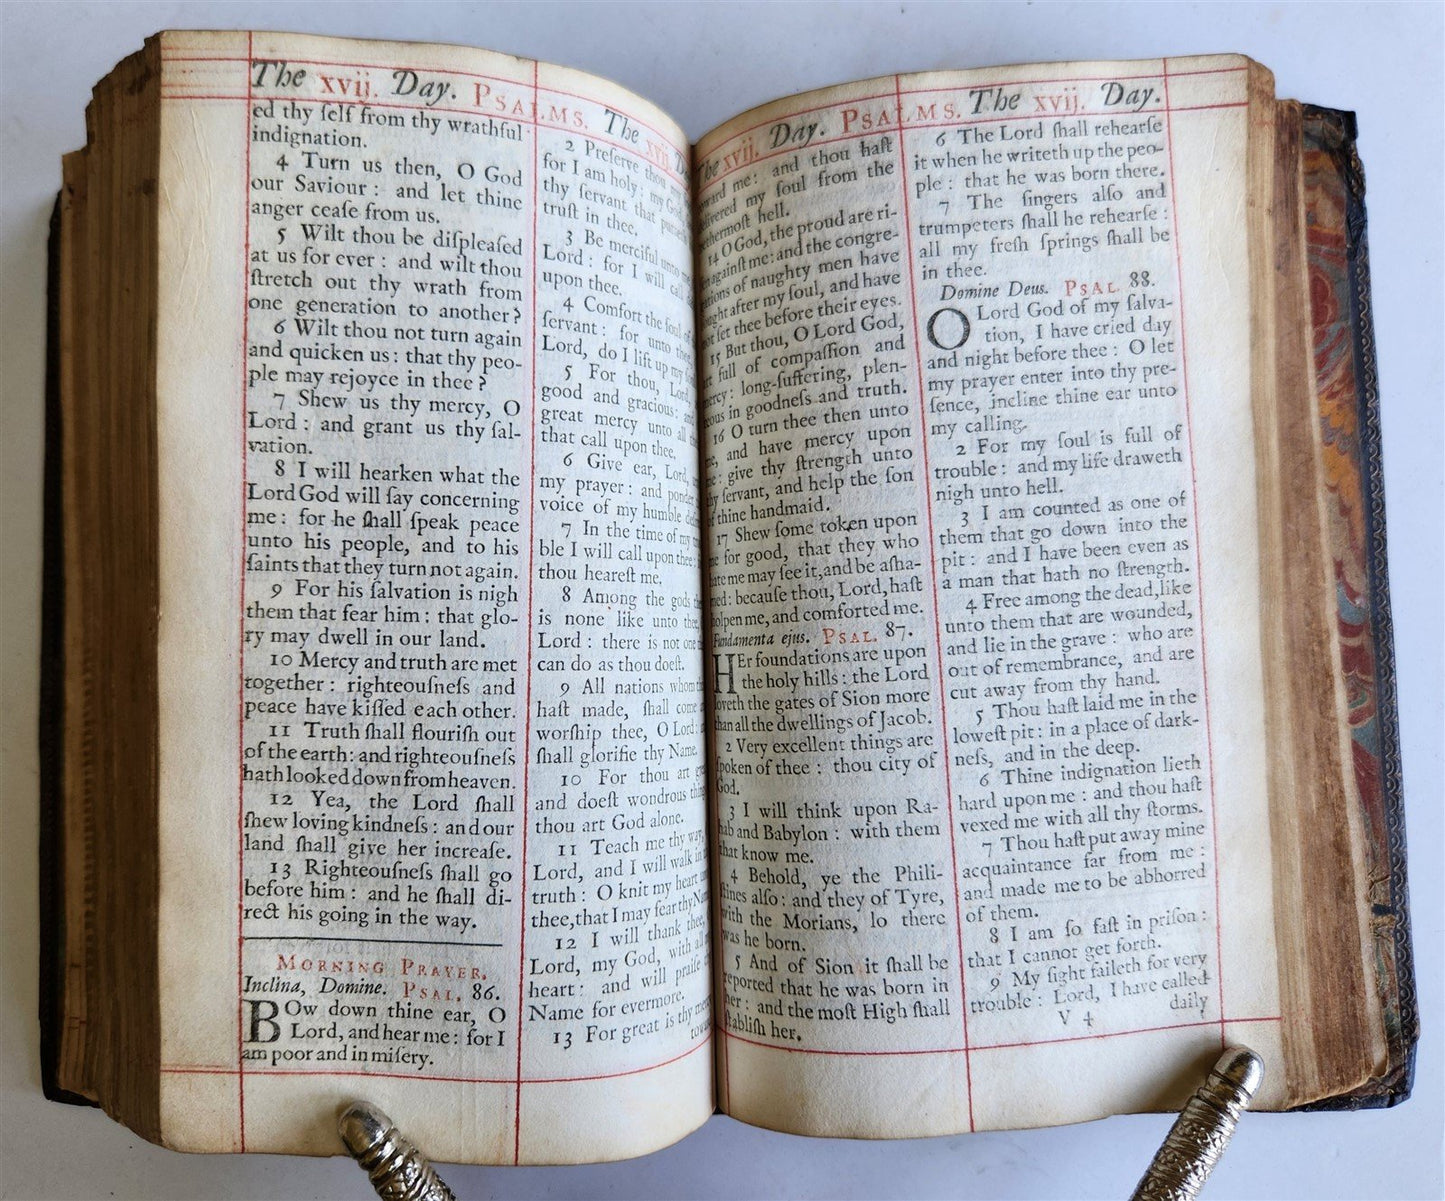 The xvij. Day. PSALMS. The xvij.
ed thy ſelf from thy wrathful
indignation.
4 Turn us then, O God
our Saviour: and let thine
anger ceaſe from us.
5 Wilt thou be diſpleaſed
at us for ever: and wilt thou
ſtretch out thy wrath from
one generation to another?
6 Wilt thou not turn again
and quicken us: that thy peo-
ple may rejoyce in thee?
7 Shew us thy mercy, O
Lord: and grant us thy ſal-
vation.
8 I will hearken what the
Lord God will ſay concerning
me: for he ſhall ſpeak peace
unto his people, and to his
ſaints that they turn not again.
9 For his ſalvation is nigh
them that fear him: that glo-
ry may dwell in our land.
10 Mercy and truth are met
together: righteouſneſs and
peace have kiſſed each other.
11 Truth ſhall flouriſh out
of the earth: and righteouſneſs
hath looked down from heaven.
12 Yea, the Lord ſhall
ſhew loving kindneſs: and our
land ſhall give her increaſe.
13 Righteouſneſs ſhall go
before him: and he ſhall di-
rect his going in the way.
MORNING PRAYER.
Inclina, Domine. PSAL. 86.
BOw down thine ear, O
Lord, and hear me: for I
am poor and in miſery.
2 Preſerve thou my
for I am holy: my God,
thy ſervant that
truſt in thee.
3 Be merciful unto
Lord: for I will call
upon thee.
4 Comfort the ſoul of
ſervant: for unto thee,
Lord, do I lift up my
5 For thou, Lord,
good and gracious:
great mercy unto all
that call upon thee.
6 Give ear, Lord,
my prayer: and ponder
voice of my humble
7 In the time of my
ble I will call upon thee:
thou heareſt me.
8 Among the gods
is none like unto thee,
Lord: there is not one
can do as thou doeſt.
9 All nations whom
haſt made, ſhall come
worſhip thee, O Lord:
ſhall glorifie thy Name.
10 For thou art
and doeſt wondrous
thou art God alone.
11 Teach me thy way,
Lord, and I will walk in
truth: O knit my heart
thee, that I may fear thy
12 I will thank thee,
Lord, my God, with
heart: and will praiſe
Name for evermore.
13 For great is thy mercy
The xvij. Day. PSALMS. The xvij. Day.
toward me: and thou haſt
delivered my ſoul from the
nethermoſt hell.
14 O God, the proud are ri-
againſt me: and the congre-
gations of naughty men have
ſought after my ſoul, and have
not ſet thee before their eyes.
15 But thou, O Lord God,
art full of compaſſion and
mercy: long-ſuffering, plen-
teous in goodneſs and truth.
16 O turn thee then unto
me, and have mercy upon
me: give thy ſtrength unto
thy ſervant, and help the ſon
of thine handmaid.
17 Shew ſome token upon
me for good, that they who
hate me may ſee it, and be aſha-
med: becauſe thou, Lord, haſt
holpen me, and comforted me.
Fundamenta ejus. PSAL. 87.
HEr foundations are upon
the holy hills: the Lord
loveth the gates of Sion more
than all the dwellings of Jacob.
2 Very excellent things are
ſpoken of thee: thou city of
God.
3 I will think upon Ra-
hab and Babylon: with them
that know me.
4 Behold, ye the Phili-
ſtines alſo: and they of Tyre,
with the Morians, lo there
was he born.
5 And of Sion it ſhall be
reported that he was born in
her: and the moſt High ſhall
ſtabliſh her.
6 The Lord ſhall rehearſe
it when he writeth up the peo-
ple: that he was born there.
7 The ſingers alſo and
trumpeters ſhall he rehearſe:
all my freſh ſprings ſhall be
in thee.
Domine Deus. PSAL. 88.
O Lord God of my ſalva-
tion, I have cried day
and night before thee: O let
my prayer enter into thy pre-
ſence, incline thine ear unto
my calling.
2 For my ſoul is full of
trouble: and my life draweth
nigh unto hell.
3 I am counted as one of
them that go down into the
pit: and I have been even as
a man that hath no ſtrength.
4 Free among the dead, like
unto them that are wounded,
and lie in the grave: who are
out of remembrance, and are
cut away from thy hand.
5 Thou haſt laid me in the
loweſt pit: in a place of dark-
neſs, and in the deep.
6 Thine indignation lieth
hard upon me: and thou haſt
vexed me with all thy ſtorms.
7 Thou haſt put away mine
acquaintance far from me:
and made me to be abhorred
of them.
8 I am ſo faſt in priſon:
that I cannot get forth.
9 My ſight faileth for very
trouble: Lord, I have called
V 4 daily